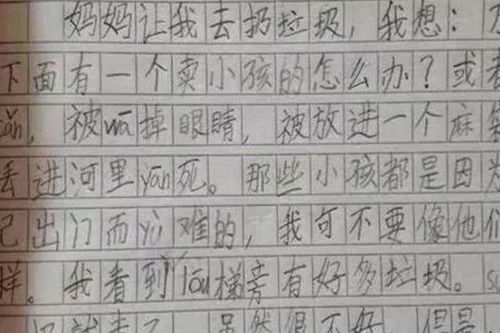 妈妈让我去扔垃圾，我想：
下面有一个卖小孩的怎么办？或者
被wā掉眼睛，被放进一个麻
丢进河里yān死。那些小孩都是因为
己出门而yù难的，我可不要像他们
样。我看到lóu梯旁有好多垃圾。